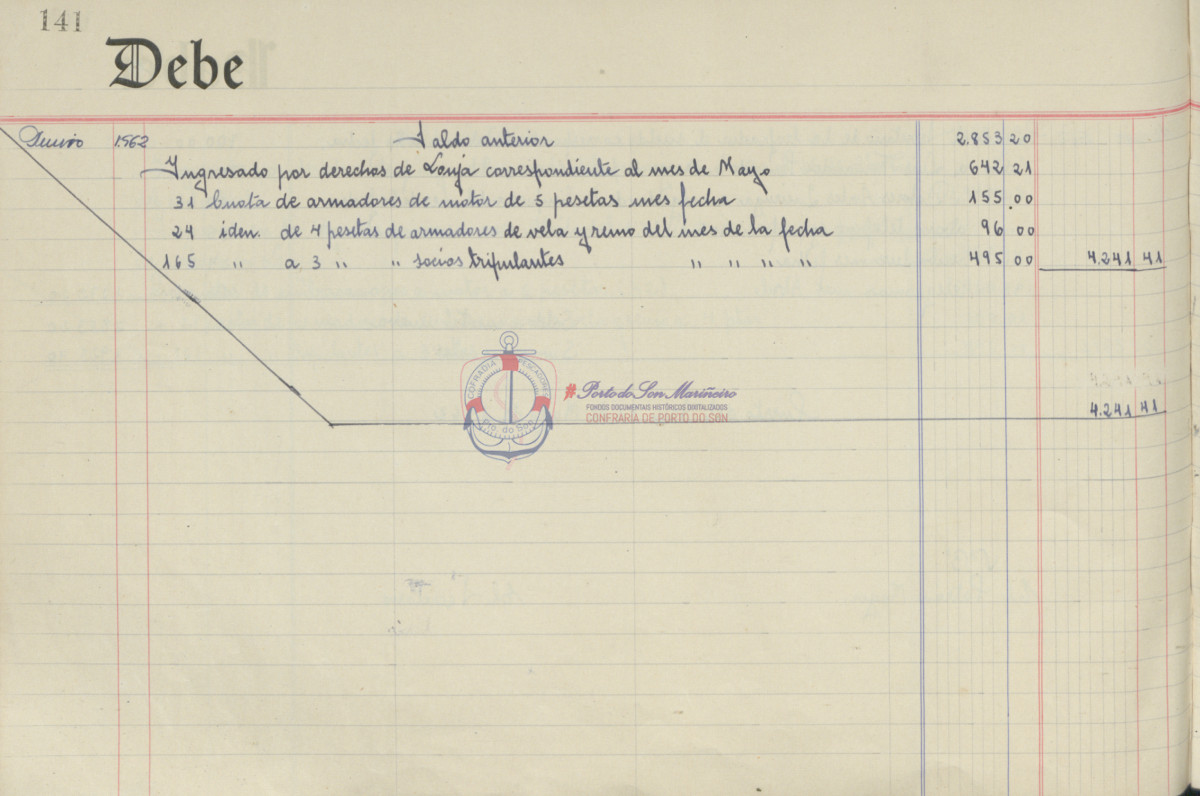 141
Debe
Junio 1962 Saldo anterior 2.853 20
Ingresado por derechos de Lonja correspondiente al mes de Mayo 642 21
31 Cuota de armadores de motor de 5 pesetas mes fecha 155.00
24 iden. de 4 pesetas de armadores de vela y remo del mes de la fecha 96 00
165 " a 3 " " socios tripulantes " " " " 495 00 4.241 41
COFRADIA PESCADORES
Pto. do Son
#Porto do Son Mariñeiro
FONDOS DOCUMENTAIS HISTÓRICOS DIXITALIZADOS
CONFRARÍA DE PORTO DO SON
4.241 41